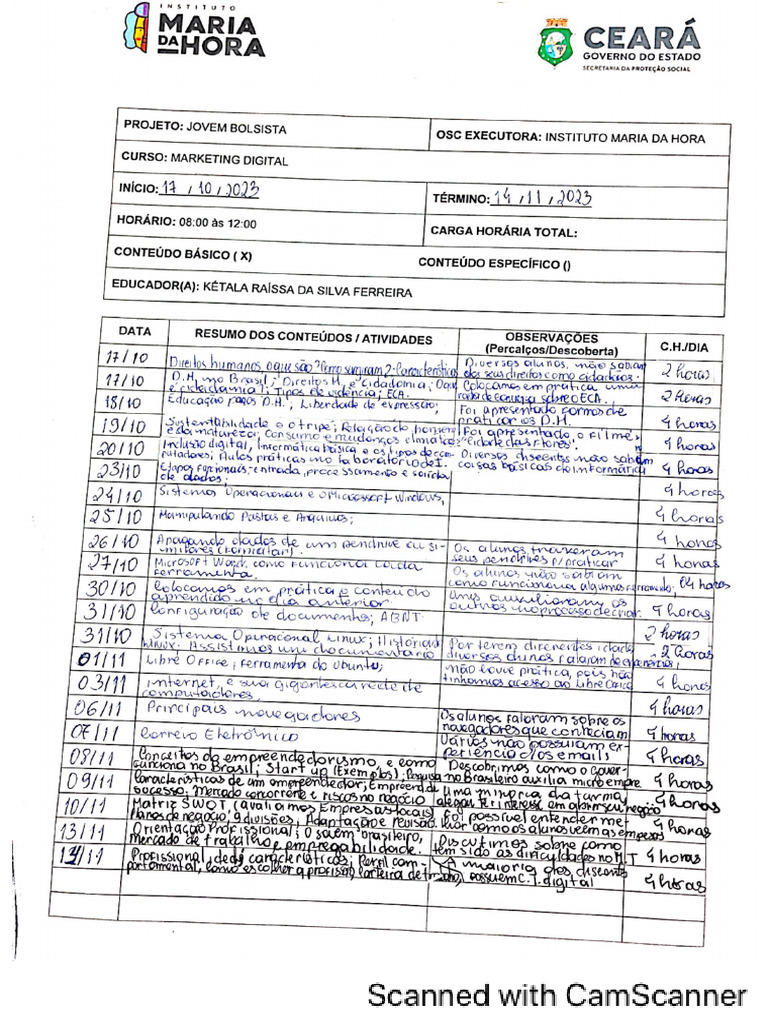 INSTITUTO
MARIA
DA HORA
CEARÁ
GOVERNO DO ESTADO
SECRETARIA DA PROTEÇÃO SOCIAL
PROJETO: JOVEM BOLSISTA
OSC EXECUTORA: INSTITUTO MARIA DA HORA
CURSO: MARKETING DIGITAL
INÍCIO: 17 / 10 / 2023
TÉRMINO: 14 / 11 / 2023
HORÁRIO: 08:00 às 12:00
CARGA HORÁRIA TOTAL:
CONTEÚDO BÁSICO ( X)
CONTEÚDO ESPECÍFICO ()
EDUCADOR(A): KÉTALA RAÍSSA DA SILVA FERREIRA
DATA
RESUMO DOS CONTEÚDOS / ATIVIDADES
OBSERVAÇÕES
(Percalços/Descoberta)
C.H./DIA
17/10
Direitos humanos o que são? Como surgiram? Características
Diversos alunos não sabiam
dos seus direitos como cidadãos.
2 horas
17/10
D.H. no Brasil; Direitos H. e cidadania; O que
é cidadania?; Tipos de violência; ECA.
Colocamos em prática uma
roda de conversa sobre o ECA.
2 horas
18/10
Educação D.H.; Liberdade de expressão;
Foi apresentado formas de
praticar os D.H.
4 horas
19/10
Sustentabilidade e o tripé; Relação do homem
e da natureza; Consumo e mudanças climáticas
Foi apresentado o filme,
"Cidade das Flores".
4 horas
20/10
Inclusão digital, Informática básica e os tipos de com-
putadores; Aulas práticas no laboratório de I.
Diversos discentes não sabiam
coisas básicas da informática
4 horas
23/10
Etapas funcionais: entrada, processamento e saída
de dados;
4 horas
24/10
Sistemas Operacionais e o Microssoft Windows,
25/10
Manipulando Pastas e Arquivos;
4 horas
26/10
Apagando dados de um pendrive ou si-
milares (Formatar).
Os alunos trouxeram
seus pendrives p/ praticar
4 horas
27/10
Microsoft Word, como funciona cada
ferramenta.
Os alunos não sabiam
como funcionava algumas ferramentas.
04 horas
30/10
Colocamos em prática o conteúdo
aprendido no dia anterior
uns auxiliaram os
outros no processo de criar.
4 horas
31/10
Configuração de documentos; ABNT.
2 horas
31/10
Sistema Operacional Linux; História do
linux. Assistimos um documentário
Por terem diferentes idades,
diversos alunos falaram de experiências;
2 horas
01/11
Libre Office; ferramenta do Ubuntu;
não houve prática, pois não
tínhamos acesso ao Libre Office
4 horas
03/11
internet, e sua gigantesca rede de
computadores
4 horas
06/11
Principais navegadores
Os alunos falaram sobre os
navegadores que conheciam
4 horas
07/11
Correio Eletrônico
Vários não possuíam ex-
periência c/os emails
4 horas
08/11
Conceitos do empreendedorismo, e como
funciona no Brasil; Start up (Exemplos);
Descobrimos como o Gover-
no Brasileiro auxilia micro empre
4 horas
09/11
Características de um empreendedor; Empreend. de
sucesso; Mercado concorrente e riscos no negócio
Uma minoria da turma
alegar ter interesse em abrir seu negócio
4 horas
10/11
Matriz SWOT (avaliamos Empresas locais)
Planos de negócio, 9 divisões; Adaptação e revisão.
Foi possível entender me-
lhor como os alunos veem as empresas
4 horas
13/11
Orientação Profissional; O jovem brasileiro,
mercado de trabalho e empregabilidade.
Discutimos sobre como
tem sido as dificuldades no MT
4 horas
14/11
Profissional, características; Perfil com-
portamental, como escolher a profissão, carteira de trabalho,
A maioria dos discentes
possuem C.T. digital
4 horas
Scanned with CamScanner